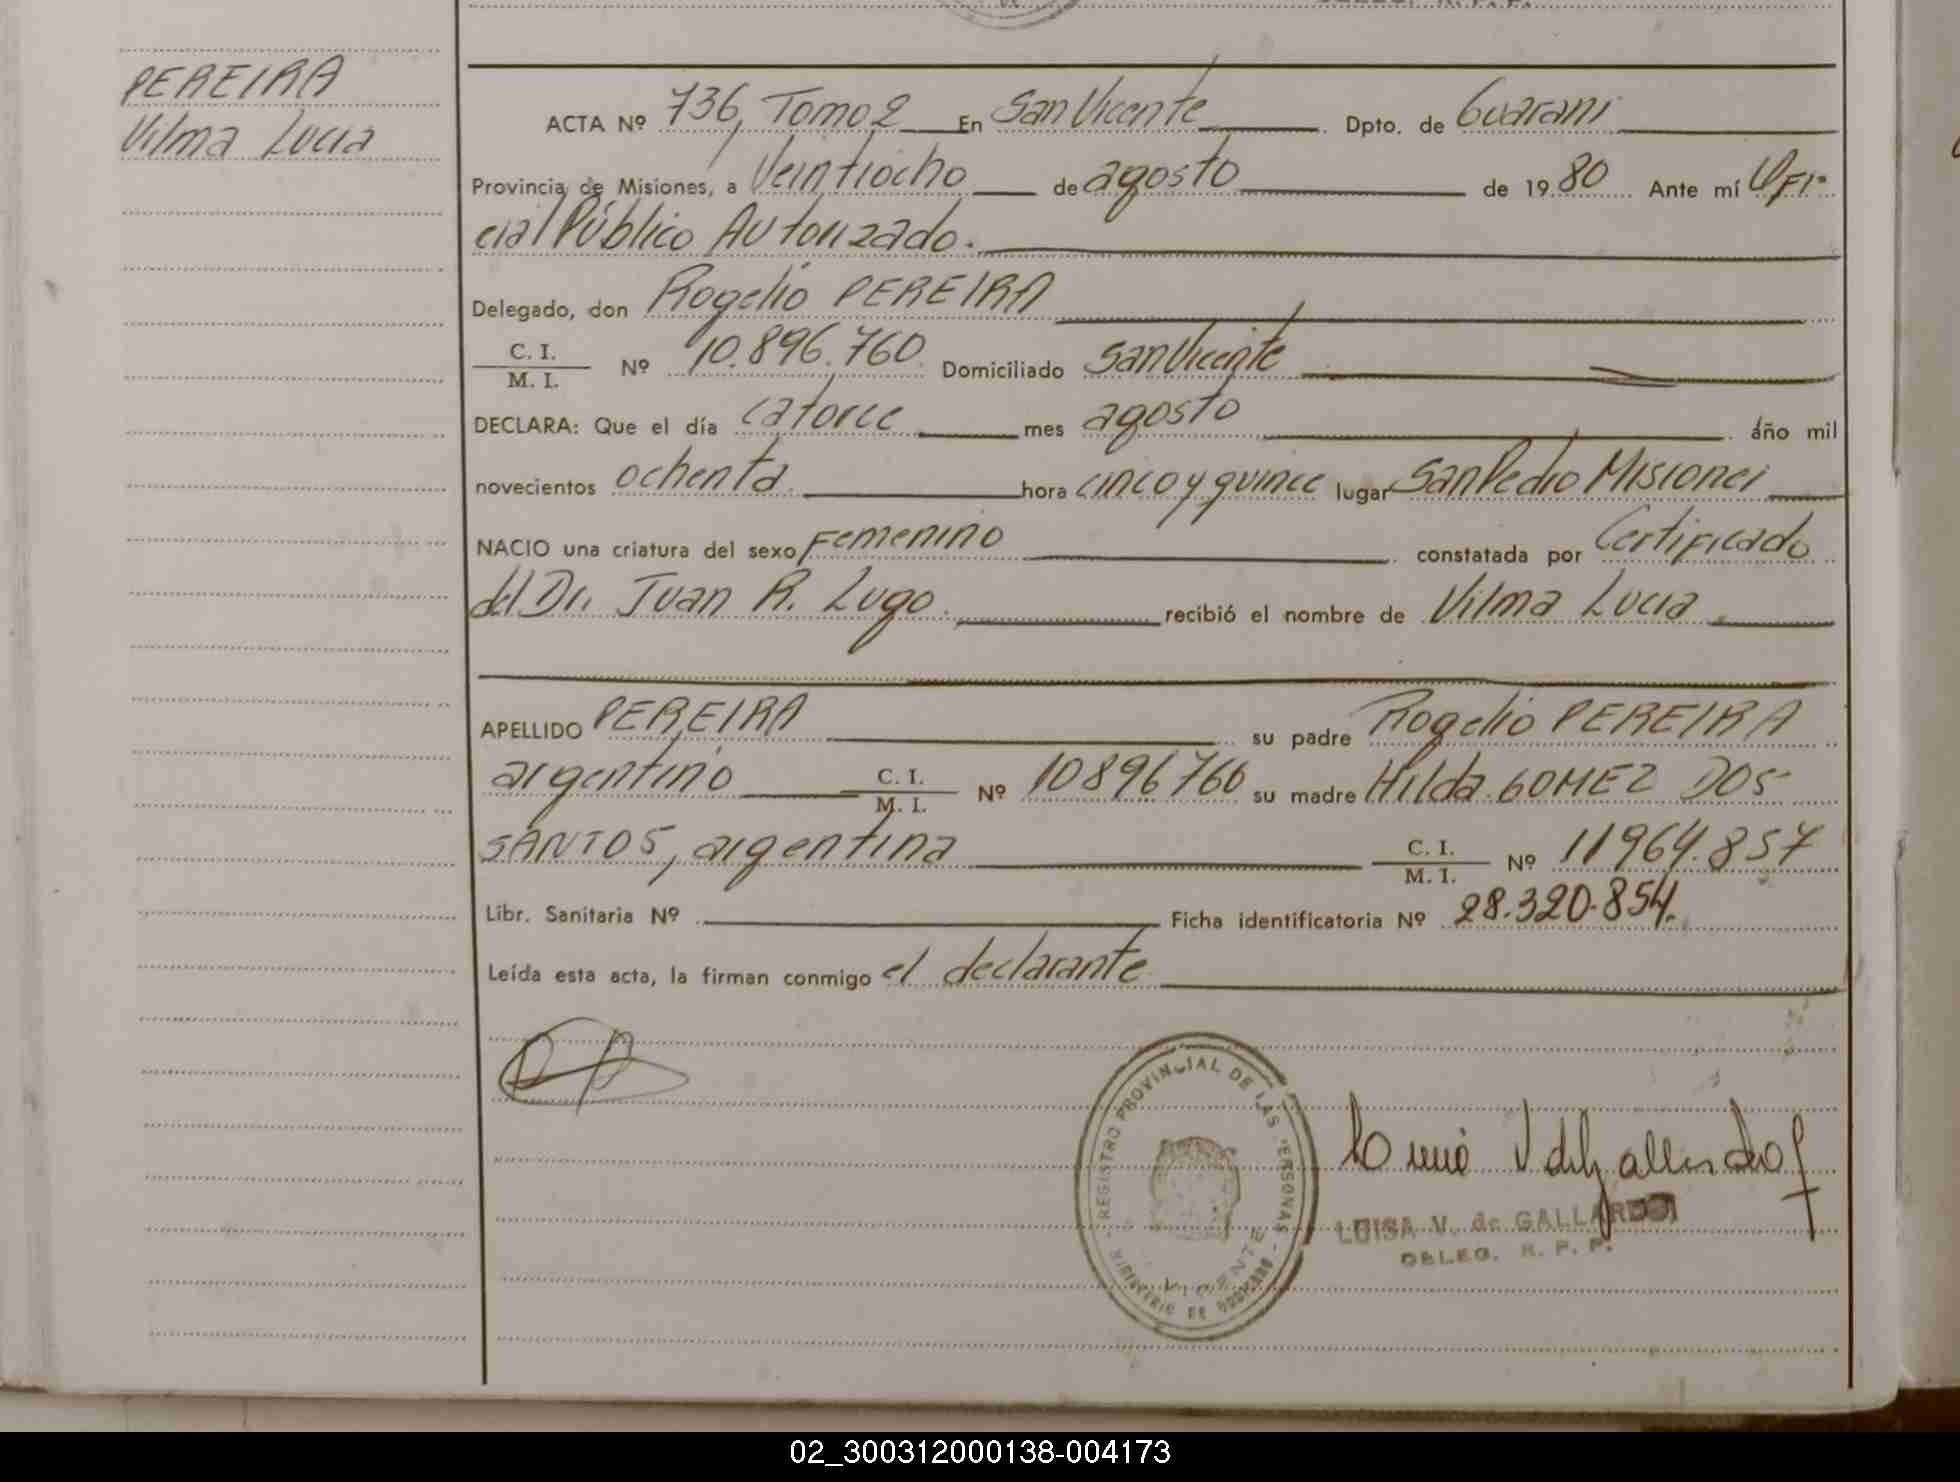 PEREIRA
Vilma Lucia
ACTA Nº 736, Tomo 2 En San Vicente Dpto. de Guarani
Provincia de Misiones, a Veintiocho de agosto de 1980 Ante mí Ofi-
cial Público Autorizado.
Delegado, don Rogelio PEREIRA
C. I.
M. I.
Nº 10.896.760 Domiciliado San Vicente
DECLARA: Que el día catorce mes agosto año mil
novecientos ochenta hora cinco y quince lugar San Pedro Misiones
NACIO una criatura del sexo Femenino constatada por Certificado
del Dr. Juan R. Lugo. recibió el nombre de Vilma Lucia
APELLIDO PEREIRA su padre Rogelio PEREIRA
argentino C. I. M. I. Nº 10896760 su madre Hilda GOMEZ DOS
SANTOS, argentina C. I. M. I. Nº 11964.857
Libr. Sanitaria Nº Ficha identificatoria Nº 28.320.854.
Leída esta acta, la firman conmigo el declarante
REGISTRO PROVINCIAL DE LAS PERSONAS
MINISTERIO DE GOBIERNO
VICENTE
LUISA V. de GALLARDO
DELEG. R. P. P.
02_300312000138-004173